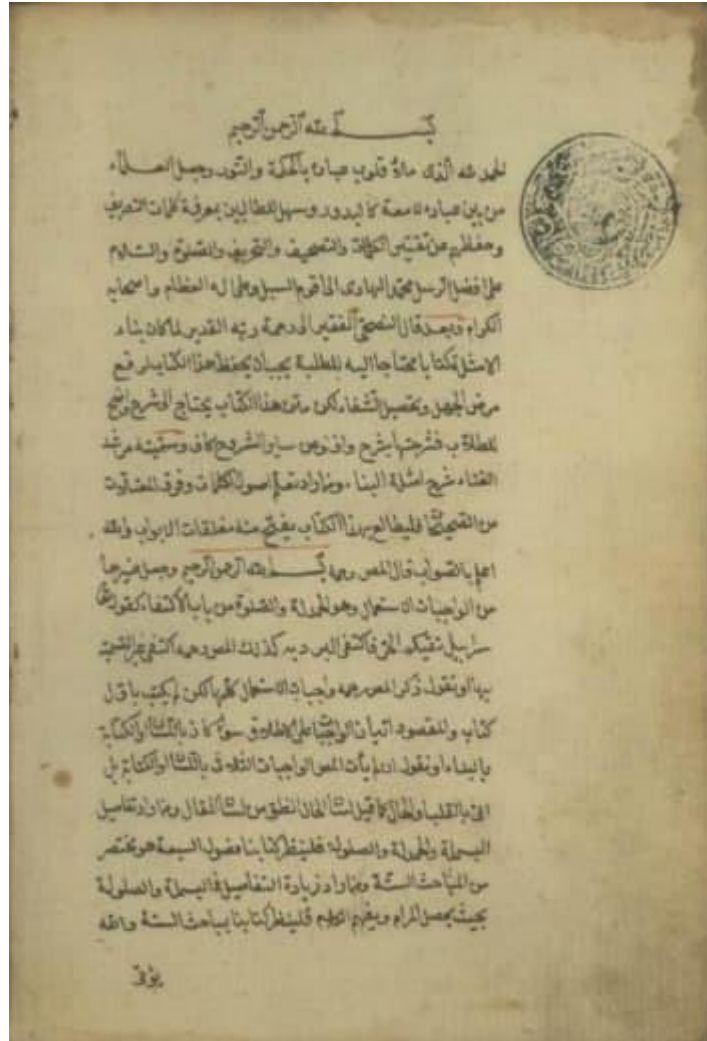 بسم الله الرحمن الرحيم
الحمد لله الذى ملأ قلوب عباده بالحكمة والنور وجعل العلماء
من بين عباده لامعة كالبدور وسهل للطالبين بمعرفة كلمات التصريف
وحفظهم عن تغيير الكلمات والتصحيف والتحريف والصلوة والسلام
على افضل الرسل محمد الهادى الى اقوم السبل وعلى اله العظام واصحابه
الكرام وبعد قال الفقير الى رحمة ربه القدير لما كان بناء
الامثلة كتابا محتاجا اليه للطلبة يجب ان يحفظ هذا الكتاب لرفع
مرض الجهل وتحصيل الشفاء لكن متن هذا الكتاب يحتاج الى شرح واضح
للطلاب فشرحتها بشرح واف وعن سائر الشروح كاف وسميته مرشد
شرح امثلة البناء ومن اراد تعلم اصول الكلمات وفرق
من فليطالع بهذا الكتاب يفتح منه مغلقات الابواب والله
اعلم بالصواب قال المص رحمه بسم الله الرحمن الرحيم وجعل غيرها
من الواجبات الاستعمال وهو الحمدلة والصلوة من باب الاكتفاء كقوله تعالى
سرابيل تقيكم الحر فاكتفى البرد به كذلك المص رحمه اكتفى غير التسمية
بها او نقول ذكر المص رحمه واجبات الاستعمال كلها لكن لم يكتب باول
كتاب والمقصود اتيان الواجبات على الاطلاق سواء كان باللسان او الكتابة
بالبناء او نقول لم يأت المص الواجبات الثلاث باللسان او الكتابة بل
اتى بالقلب او الحال كما قيل لسان الحال انطق من لسان المقال ومن اراد تفاصيل
البسملة والحمدلة والصلولة فلينظر كتابنا فصول السبعة هو مختصر
من المباحث الستة ومن اراد زيادة التفاصيل فى البسملة والصلولة
بحيث يحصل المرام ويفهم فلينظر كتابنا مباحث الستة والله